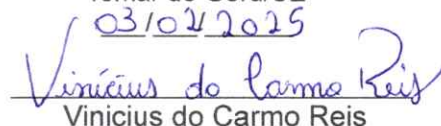 03/02/2025
Vinícius do Carmo Reis
Vinicius do Carmo Reis